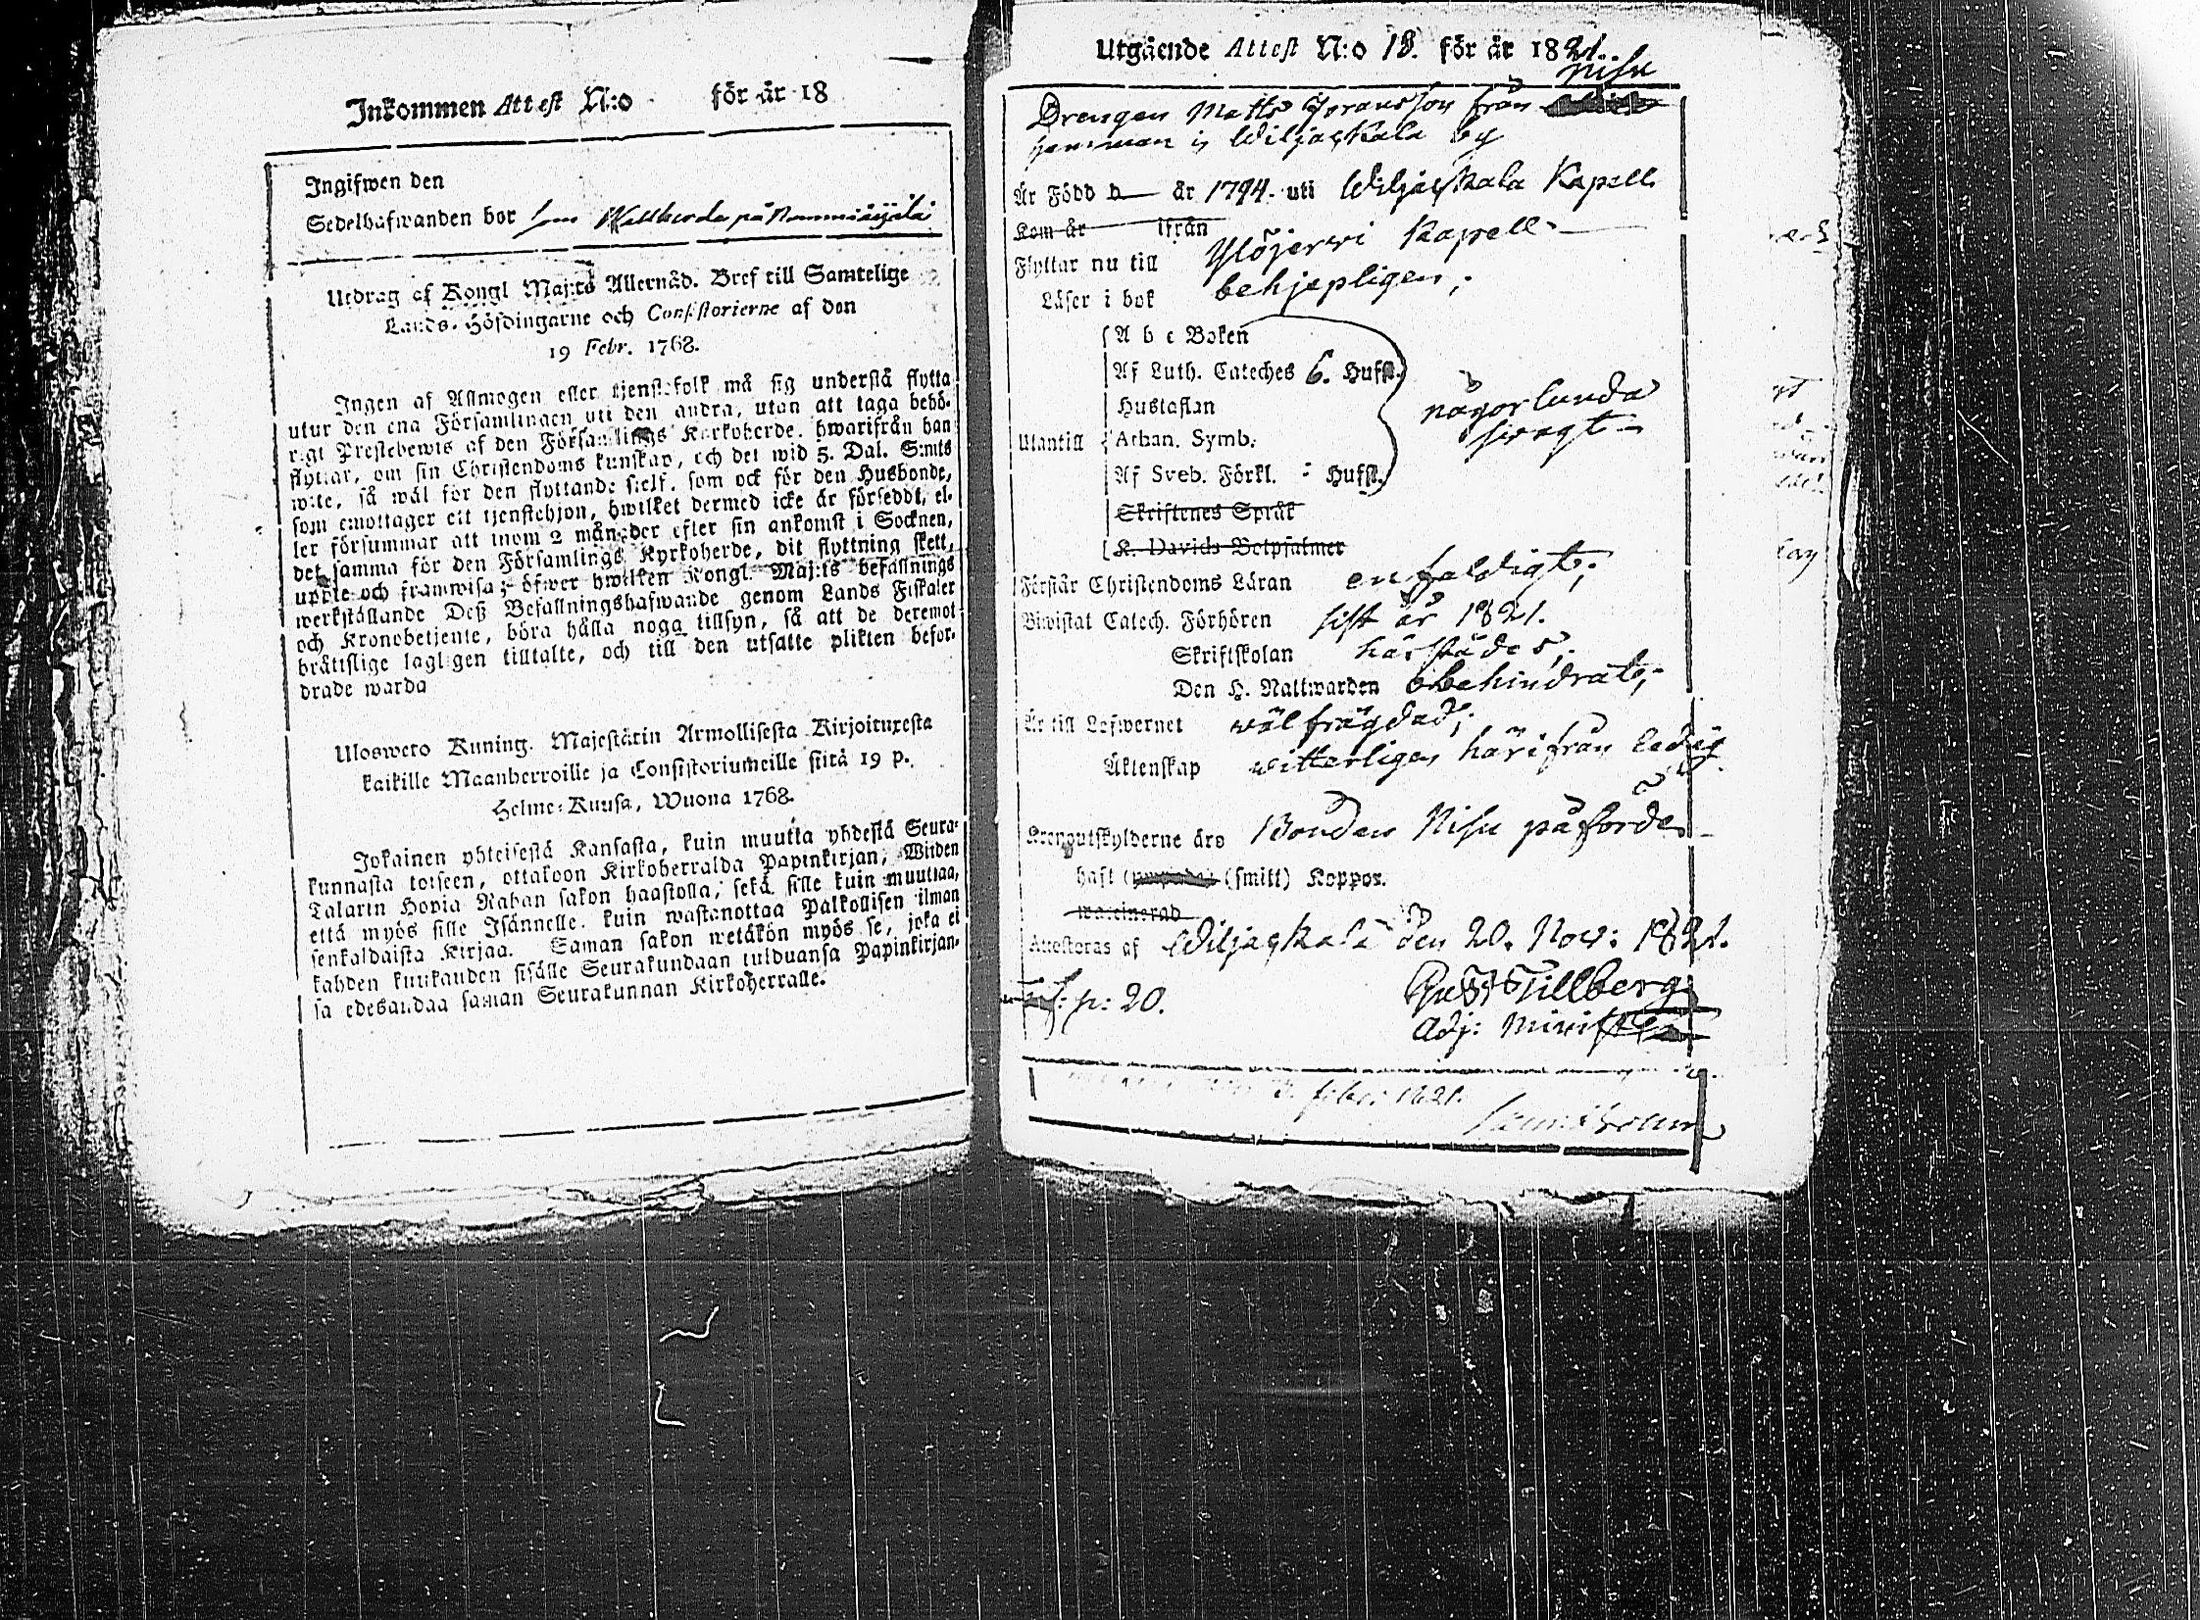 Inkommen Attest N:o för är 18
Ingifwen den
Sedelhafwanden bor
Utdrag af Kongl Maj:ts Allernåd. Bref till Samtelige
Lands-Höfdingarne och Consistorierne af den
19 Febr. 1768.
Ingen af Allmogen eller tjenstefolk må sig understå flytta
utur den ena Församlingen uti den andra, utan att taga behö-
rigt Prestebewis af den Församlings Kyrkoherde, hwarifrån han
flyttar, om sin Christendoms kunskap, och det wid 5. Dal. S:mts
wite, så wäl för den flyttande sielf, som ock för den Husbonde,
som emottager ett tjenstehjon, hwilket dermed icke är försedt, el-
ler försummar att inom 2 månader efter sin ankomst i Socknen,
det samma för den Församlings Kyrkoherde, dit flyttning skett,
upte och framwisa; öfwer hwilken Kongl. Maj:ts befallnings
werkställande Deß Befallningshafwande genom Lands Fiskaler
och Kronobetjente, böra hålla noga tillsyn, så att de deremot
bråttslige lagligen tilltalte, och till den utsatte plikten befor-
drade warda
Uloswero Kuning. Majestätin Armollisesta Kirjoituxesta
kaikille Maanherroille ja Consistoriumeille siitä 19 p.
Helme-Kuusa, Wuona 1768.
Jokainen yhteisestä Kansasta, kuin muutta yhdestä Seura-
kunnasta toiseen, ottakoon Kirkoherralda Papinkirjan, Wiiden
Talarin Hopia Rahan sakon haastolla, sekä sille kuin muuttaa,
että myös sille Isännelle, kuin wastanottaa Palkollisen ilman
senkaldaista Kirjaa. Saman sakon wetäkön myös se, joka ei
kahden kuukauden sisälle Seurakundaan tulduansa Papinkirjan-
sa edesandaa saman Seurakunnan Kirkoherralle.
Utgående Attest N:o 18. för är 1821.
Nisu
Drengen Matts Göransson från
hemman i Wiljakkala by
Är Född d år 1794. uti Wiljakkala Kapell
Kom år ifrån
Flyttar nu till Ylöjerwi Kapell
Läser i bok behjepligen;
A b c Boken
Af Luth. Cateches 6. Hufst.
Hustaflan
Utantill Athan. Symb.
någorlunda
swagt
Af Sveb. Förkl. Hufst.
Skriftenes Språk
K. Davids Botpsalmer
Förstår Christendoms Läran enfaldigt;
Biwistat Catech. Förhören sist år 1821.
Skriftskolan härstädes;
Den H. Nattwarden obehindrat;
Är till Lefwernet wälfrägdad;
Äktenskap witterligen härifrån ledig
Krongutskylderne äro Bonden Nisu påförde
haft (smitt) Koppor.
waccinerad
Attesteras af Wiljakkala den 20. Nov: 1821.
p: 20.
Gust Tillberg
Adj: Minist